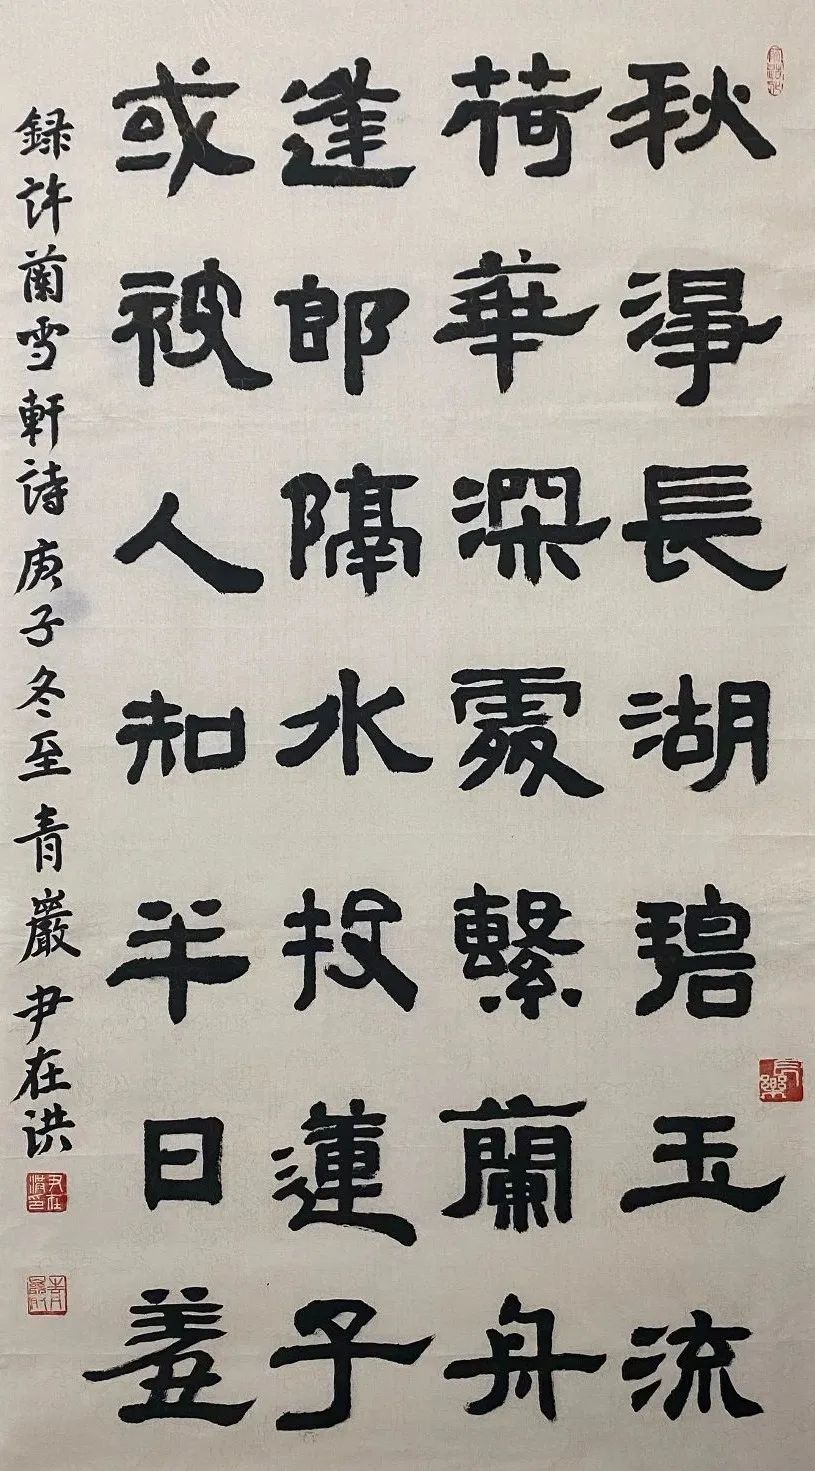 秋淨長湖碧玉流
荷華深處繫蘭舟
逢郎隔水投蓮子
或被人知半日羞
録許蘭雪軒詩庚子冬至青巖尹在洪
尹在洪印